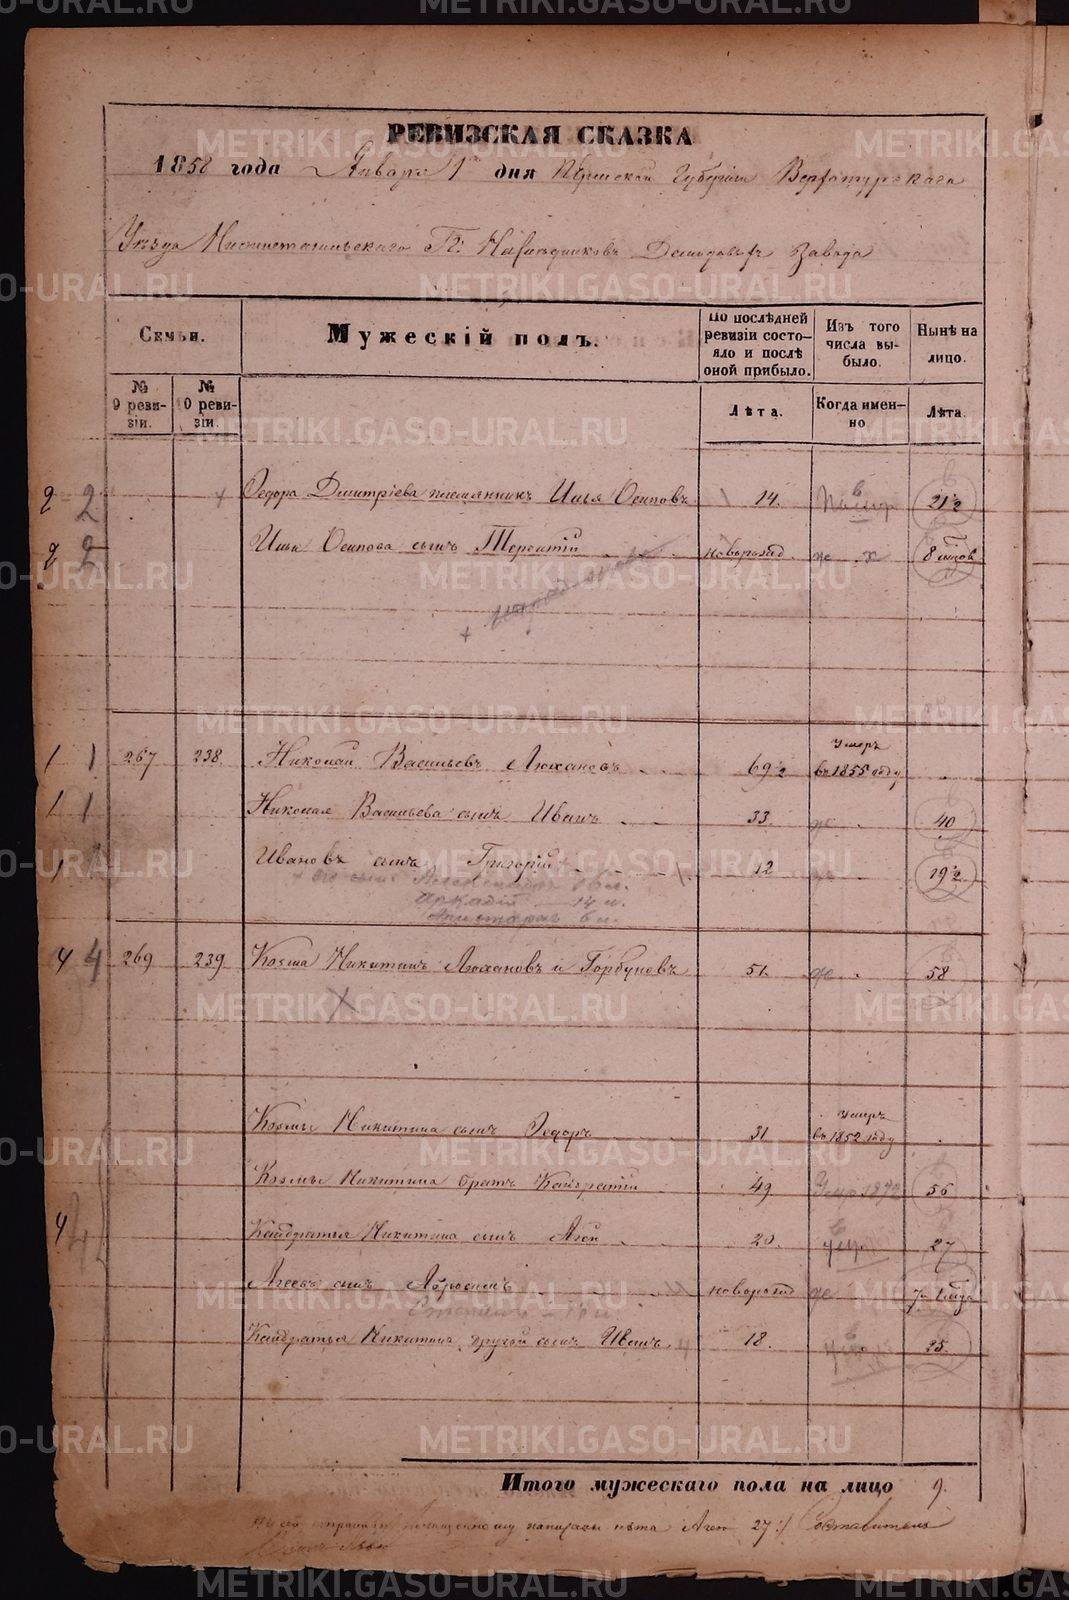 РЕВИЗСКАЯ СКАЗКА
1858 года Января 1 дня Пермской Губернiи Верхотурскаго
Уѣзда Нижнетагильскаго Гг. Наслѣдниковъ Демидовыхъ Завода
Семьи.
Мужескiй полъ.
По послѣдней ревизiи состояло и послѣ оной прибыло.
Изъ того числа выбыло.
Нынѣ на лицо.
№ 9 ревизiи.
№ 10 ревизiи.
Лѣта.
Когда именно
Лѣта.
2 2 Ѳедора Дмитрiева племянникъ Илья Осиповъ 14. 21½
2 2 Ильи Осипова сынъ Терентiй новорожд. 8 мѣсяц.
1 1 267 238. Николай Васильевъ Люхановъ 69½ Умеръ въ 1855 году
1 1 Николая Васильева сынъ Иванъ 33. 40
1 1 Ивановъ сынъ Григорiй 12 19½
его сынъ Александръ 16 л.
Аркадiй 14 л.
Аристархъ 6 л.
4 4 269 239. Козма Никитинъ Люхановъ и Горбуновъ 51. 58
Козмы Никитина сынъ Ѳедоръ 31 Умеръ въ 1852 году
Козмы Никитина братъ Кондратiй 49. Умеръ 56
4 4 Кондратья Никитина сынъ Агей 20. 27
Агеевъ сынъ Абросимъ новорожд.
Кондратья Никитина другой сынъ Иванъ 18. 25.
Итого мужескаго пола на лицо 9.
написаны лѣта Агею 27 :/ Составитель
METRIKI.GASO-URAL.RU